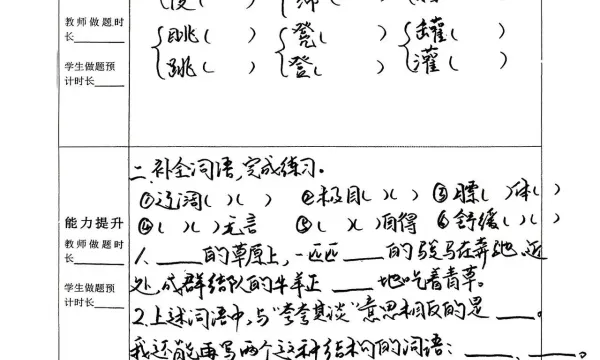 教师做题时
长
学生做题预
计时长
眺( ) 凳( ) 罐( )
跳( ) 登( ) 灌( )
能力提升
教师做题时
长
学生做题预
计时长
二、补全词语,完成练习。
①辽阔( )( ) ②极目( )( ) ③膘( )体( )
④( )( )无言 ⑤( )( )自得 ⑥舒缓( )( )
1、____的草原上,一匹匹____的骏马在奔驰,近
处,成群结队的牛羊正____地吃着青草。
2.上述词语中,与“夸夸其谈”意思相反的是____。
我还能再写两个这种结构的词语:____、____。